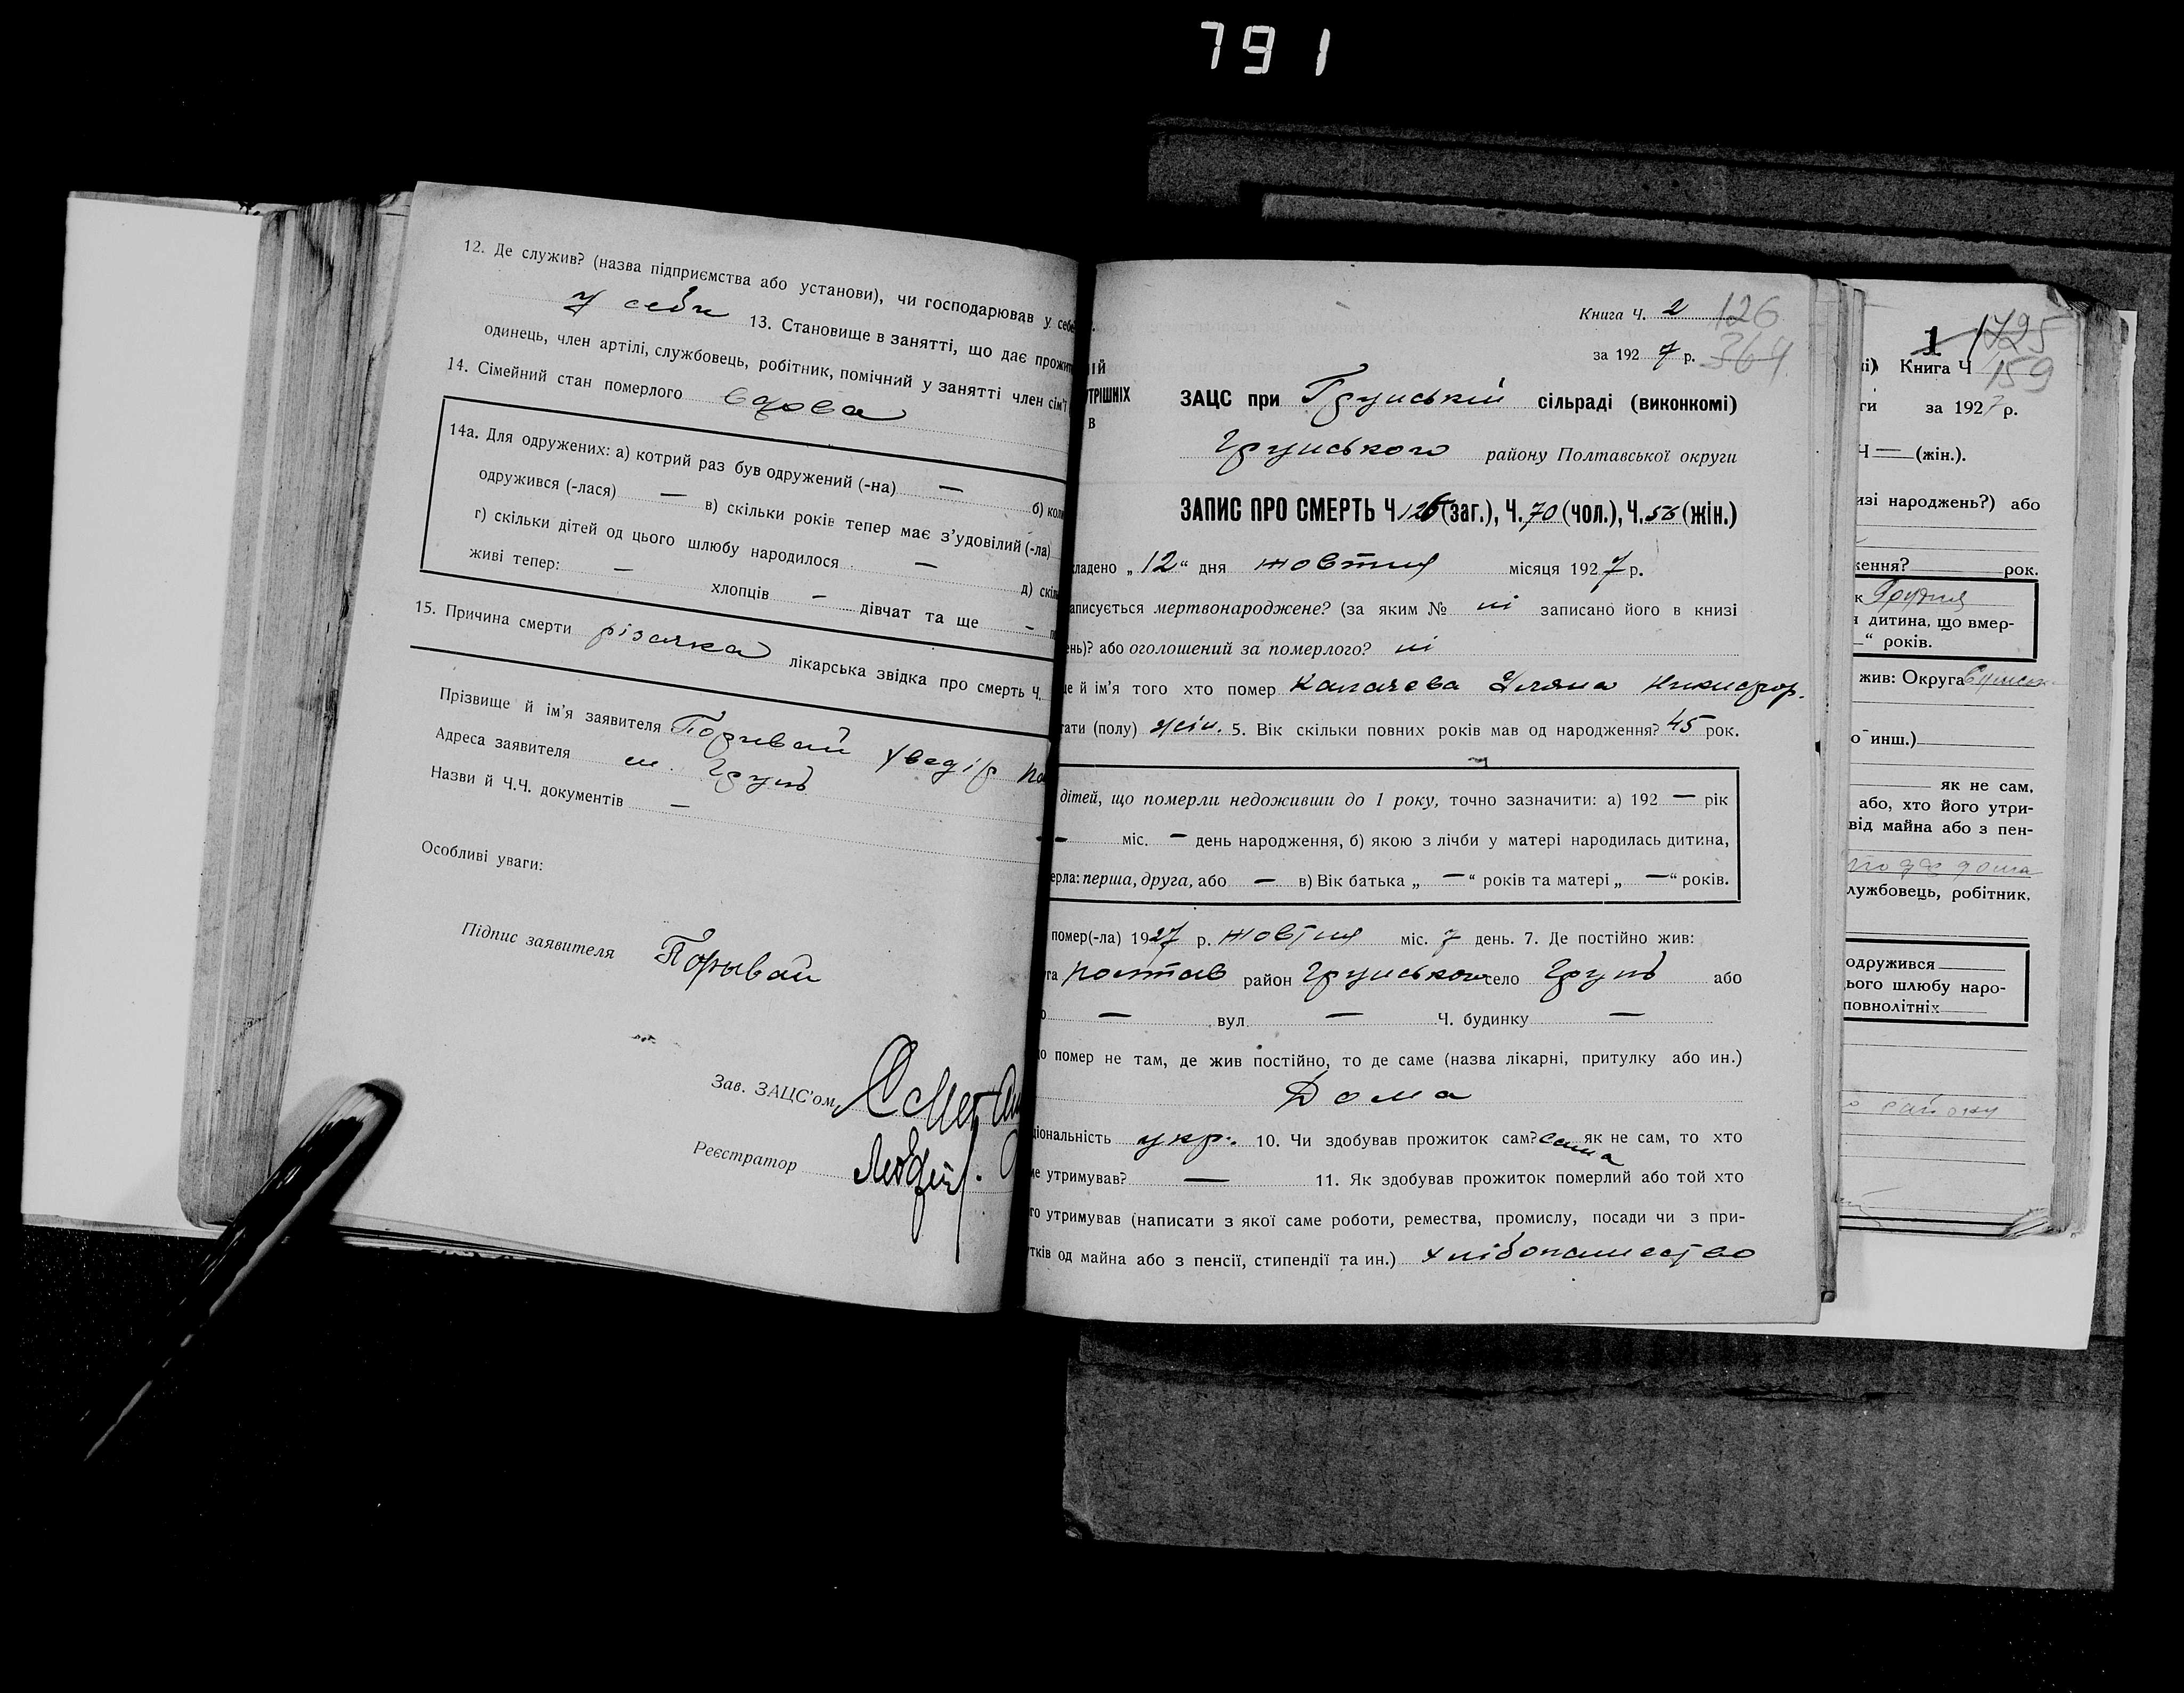 791
12. Де служив? (назва підприємства або установи), чи господарював у себе
у себе 13. Становище в занятті, що дає прожит
одинець, член артілі, службовець, робітник, помічний у занятті член сім'ї
14. Сімейний стан померлого вдова
14а. Для одружених: а) котрий раз був одружений (-на) — б) коли
одружився (-лася) — в) скільки років тепер має з'удовілий (-ла)
г) скільки дітей од цього шлюбу народилося — д) скіль
живі тепер: — хлопців — дівчат та ще —
15. Причина смерти різачка лікарська звідка про смерть Ч.
Прізвище й ім'я заявителя
Адреса заявителя м. Грунь
Назви й Ч.Ч. документів —
Особливі уваги:
Підпис заявителя Порывай
Зав. ЗАЦС'ом
Реєстратор
Книга Ч. 2 126
за 1927 р. 364
ІЙ
УТРІШНІХ
В
ЗАЦС при Грунській сільраді (виконкомі)
Грунського району Полтавської округи
ЗАПИС ПРО СМЕРТЬ Ч. 126 (заг.), Ч. 70 (чол.), Ч. 56 (жін.)
кладено „12“ дня жовтня місяця 1927 р.
аписується мертвонароджене? (за яким № ні записано його в книзі
ень)? або оголошений за померлого? ні
ще й ім'я того хто помер Капачева Уляна Никифор.
тати (полу) жін. 5. Вік скільки повних років мав од народження? 45 рок.
дітей, що померли недоживши до 1 року, точно зазначити: а) 192 — рік
— міс. — день народження, б) якою з лічби у матері народилась дитина,
ерла: перша, друга, або — в) Вік батька „—“ років та матері „—“ років.
помер(-ла) 1927 р. жовтня міс. 7 день. 7. Де постійно жив:
га Полтав район Грунського село Грунь або
о — вул. — Ч. будинку —
що помер не там, де жив постійно, то де саме (назва лікарні, притулку або ин.)
Дома
ціональність укр. 10. Чи здобував прожиток сам? сама як не сам, то хто
ме утримував? — 11. Як здобував прожиток померлий або той хто
го утримував (написати з якої саме роботи, ремества, промислу, посади чи з при-
тків од майна або з пенсії, стипендії та ин.) хлібопашество
1 1725
кі) Книга Ч 159
ги за 1927 р.
Ч — (жін.).
изі народжень?) або
ження? рок.
к Грудня
я дитина, що вмер-
—“ років.
жив: Округа
о-инш.)
як не сам,
або, хто його утри-
від майна або з пен-
лужбовець, робітник,
одружився
ього шлюбу наро-
повнолітніх